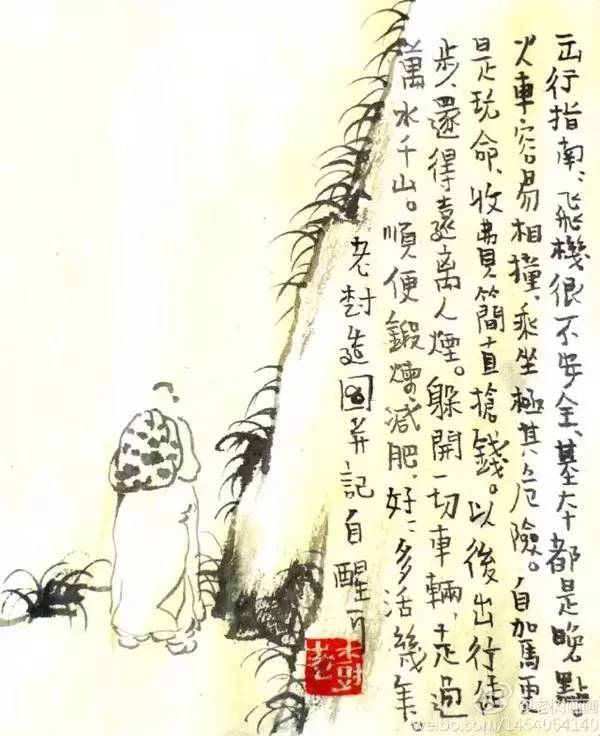 出行指南：飛機很不安全、基本都是晚點。
火車容易相撞、乘坐極其危險。自加馬更
是玩命、收費簡直搶錢。以後出行徒
步、還得遠離人煙。躲開一切車輛，走過
萬水千山。順便鍛煉減肥，好好多活幾年。
老樹造圖并記自醒
老樹
@老树画画
weibo.com/1454064140